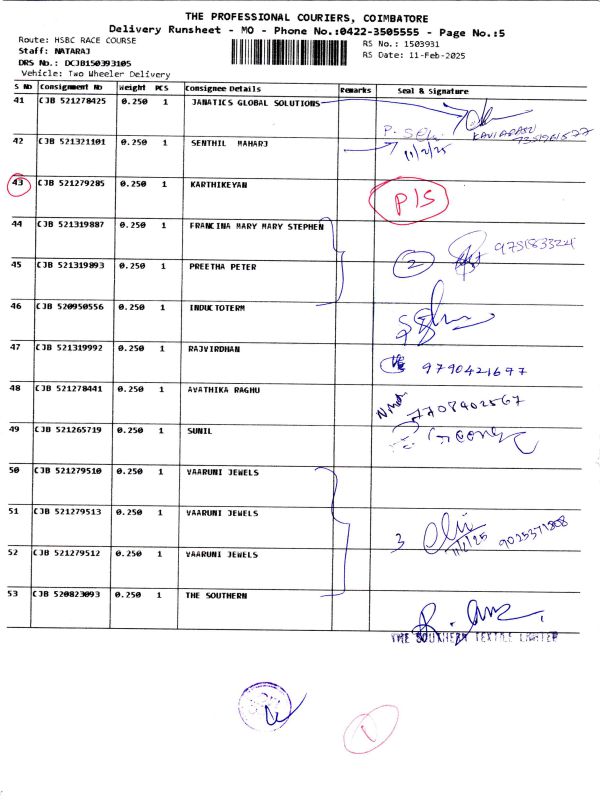 THE PROFESSIONAL COURIERS, COIMBATORE
Delivery Runsheet - MO - Phone No.:0422-3505555 - Page No.:5
Route: HSBC RACE COURSE
RS No.: 1503931
Staff: NATARAJ
RS Date: 11-Feb-2025
DRS No.: DCJB150393105
Vehicle: Two Wheeler Delivery
S No Consignment No Weight PCS Consignee Details Remarks Seal & Signature
41 CJB 521278425 0.250 1 JANATICS GLOBAL SOLUTIONS
42 CJB 521321101 0.250 1 SENTHIL MAHARJ
11/2/25
43 CJB 521279285 0.250 1 KARTHIKEYAN
P/S
44 CJB 521319887 0.250 1 FRANCINA MARY MARY STEPHEN
2
45 CJB 521319893 0.250 1 PREETHA PETER
46 CJB 520950556 0.250 1 INDUCTOTERM
47 CJB 521319992 0.250 1 RAJVIRDHAN
9790421697
48 CJB 521278441 0.250 1 AVATHIKA RAGHU
7708902567
49 CJB 521265719 0.250 1 SUNIL
50 CJB 521279510 0.250 1 VAARUNI JEWELS
51 CJB 521279513 0.250 1 VAARUNI JEWELS
3 11/2/25 9025371808
52 CJB 521279512 0.250 1 VAARUNI JEWELS
53 CJB 520823093 0.250 1 THE SOUTHERN
THE SOUTHERN TEXTILE LIMITED
1